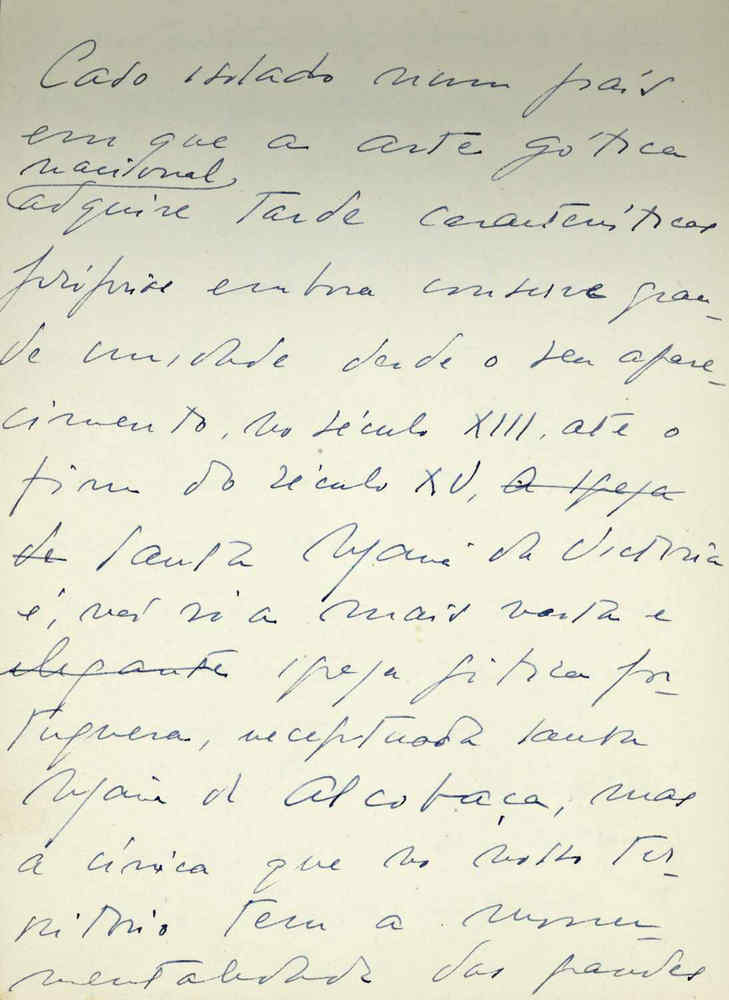 Caso isolado num país
em que a arte gótica
nacional
adquire tarde características
próprias embora conserve gran-
de unidade desde o seu apare-
cimento, no século XIII, até o
fim do século XV, a igreja
de Santa Maria da Victoria
é, não só a mais vasta e
elegante igreja gótica por-
tuguesa, exceptuada Santa
Maria de Alcobaça, mas
a única que no nosso ter-
ritório tem a monu-
mentalidade das grandes